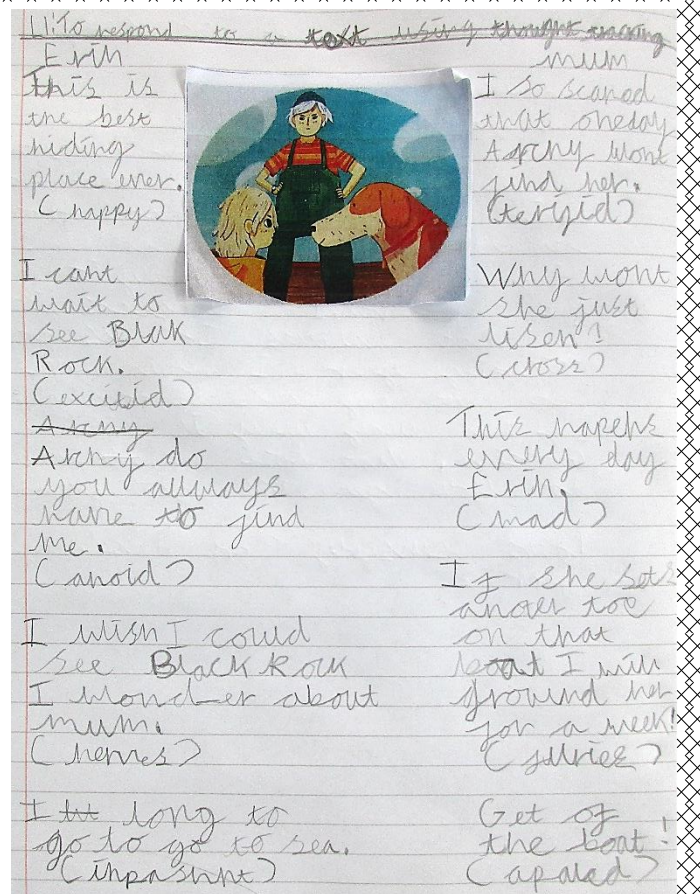 LI: To respond to a text using thought tracking
Erin
This is
the best
hiding
place ever.
(happy)
I cant
wait to
see Blak
Rock.
(excitid)
Archy
Archy do
you allways
have to find
me.
(anoid)
I wish I could
see Black Rock
I wonder about
mum.
(nerves)
I long to
go to go to sea.
(inpashnt)
mum
I so scared
that oneday
Archy wont
find her.
(terifid)
Why wont
she just
lisen!
(cross)
This hapens
every day
Erin.
(mad)
If she sets
anoter toe
on that
boat I will
ground her
for a week!
(furies)
Get of
the boat!
(apaled)